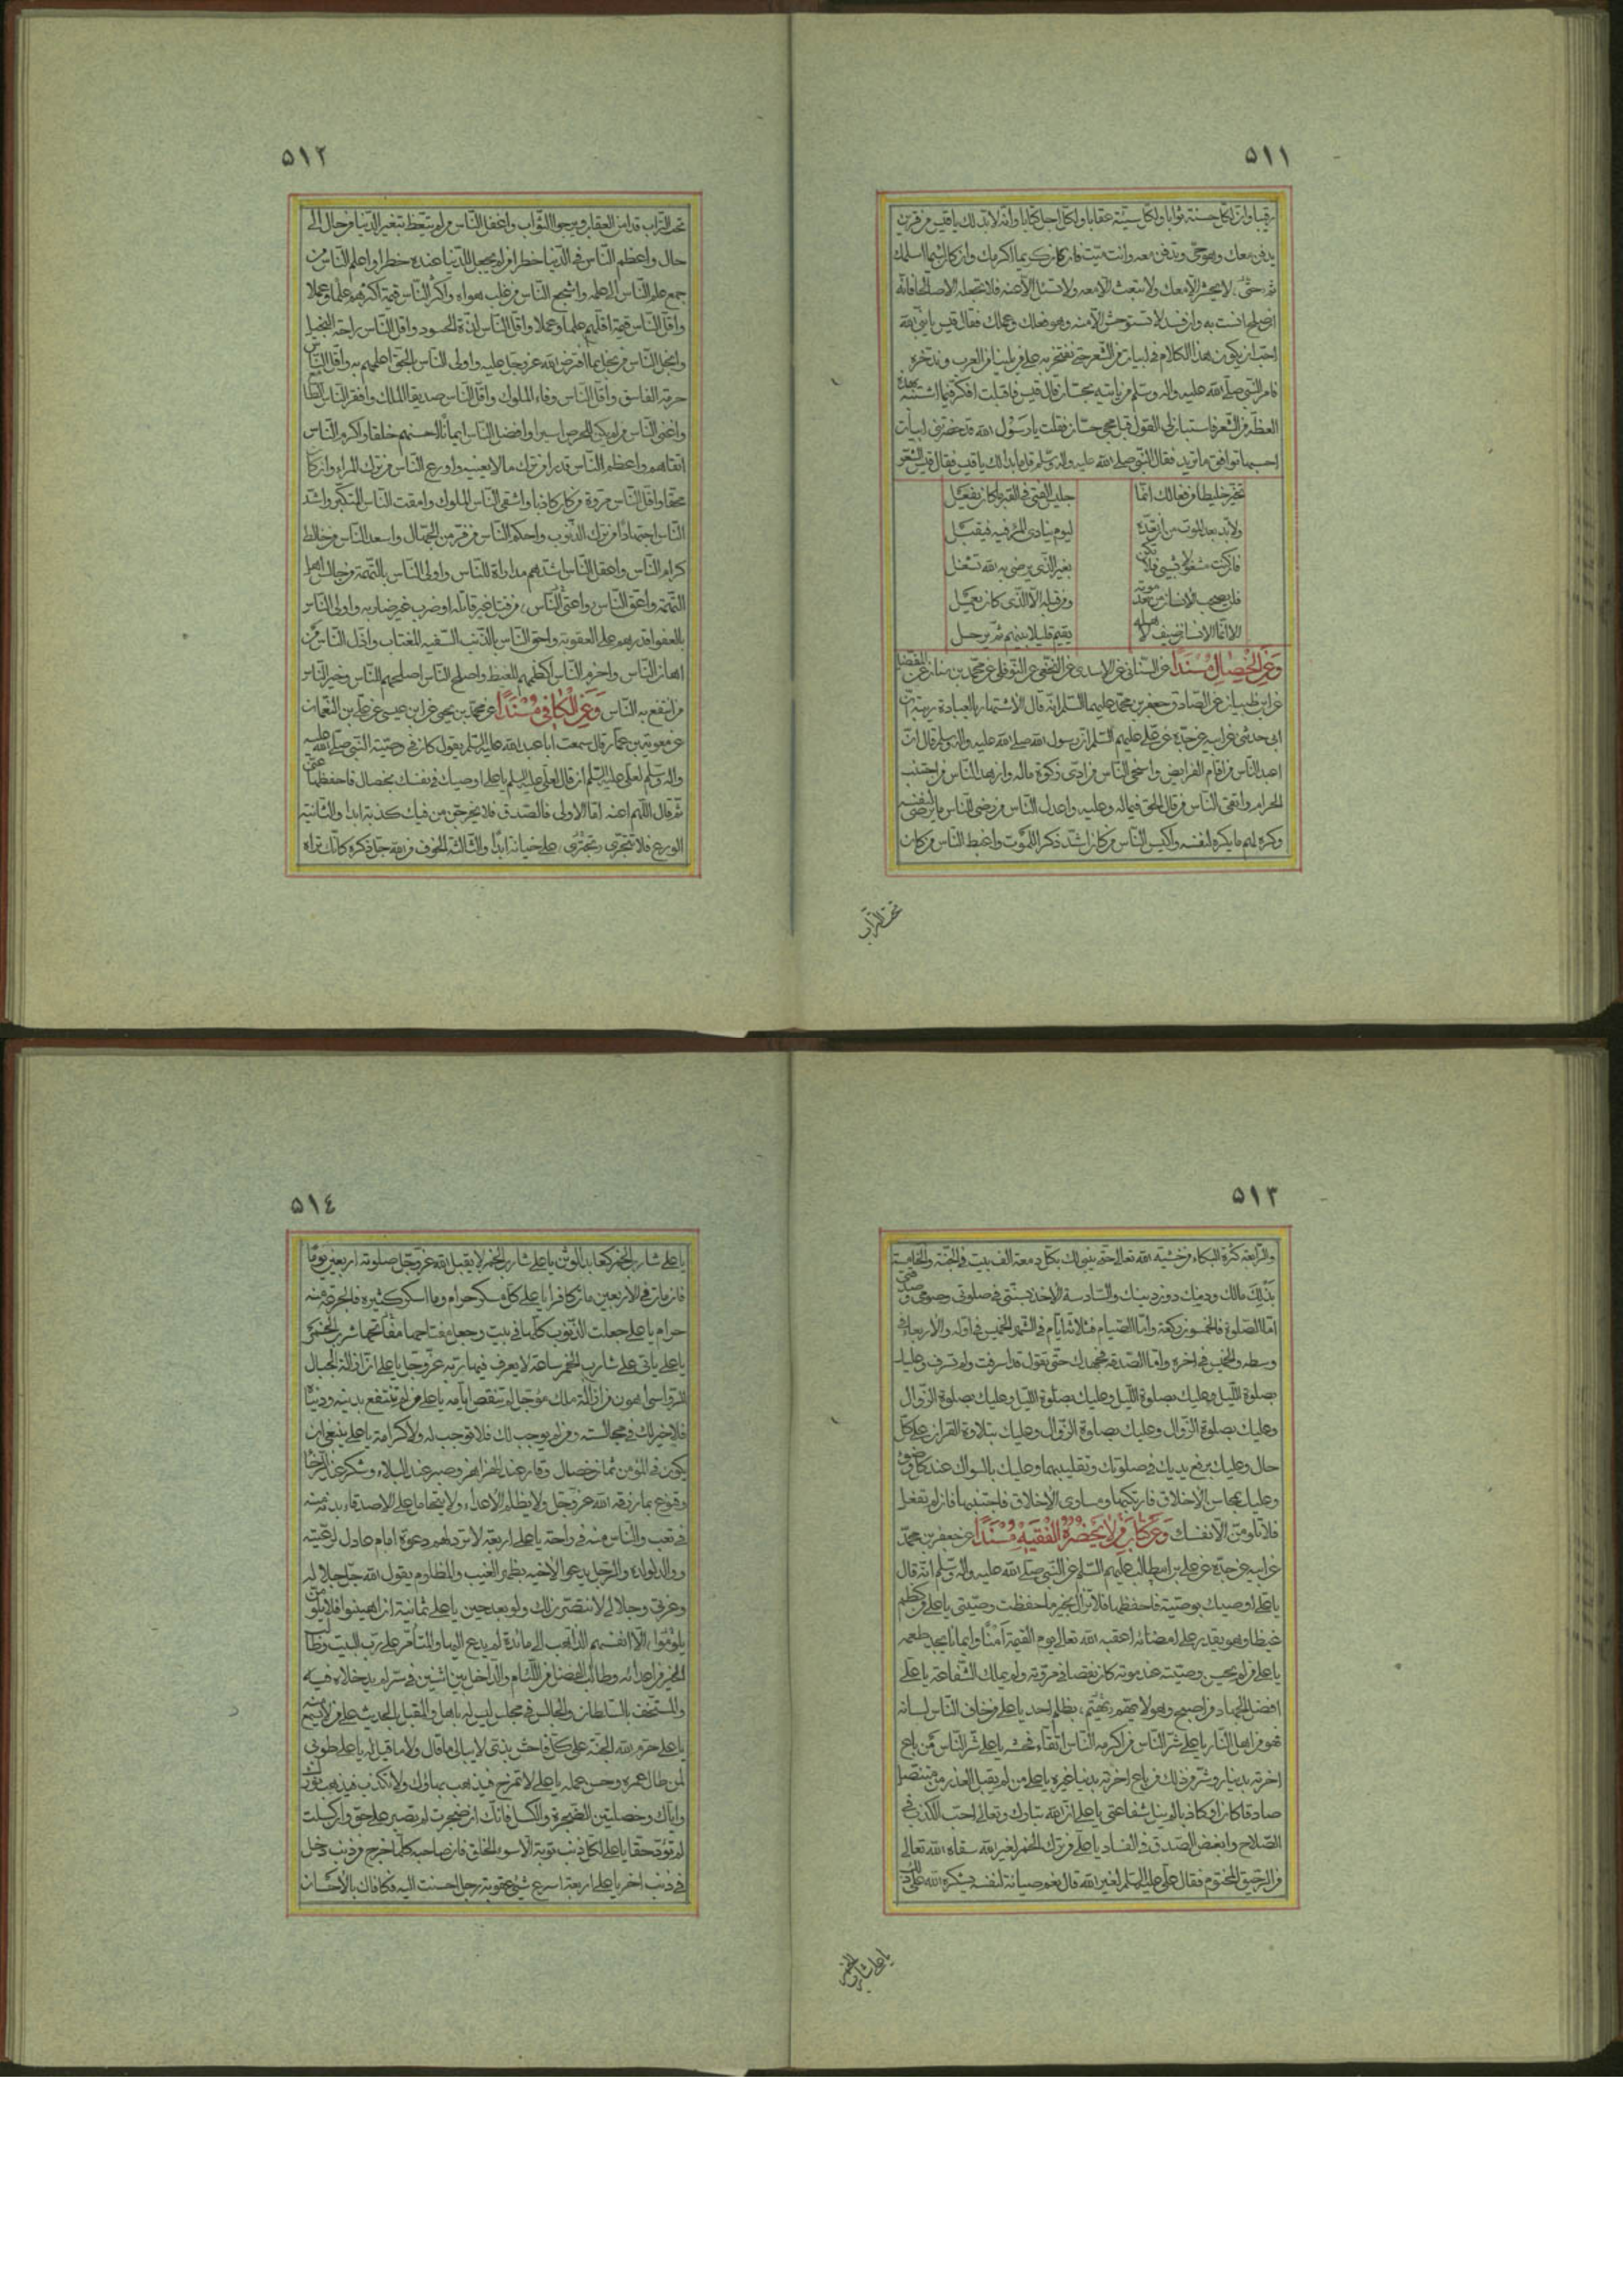 ٥١١
رقيبا وان لكل حسنة ثوابا ولكل سيئة عقابا ولكل اجل كتابا وانه لابد لك يا قيس من قرين
يدفن معك وهو حى وتدفن معه وانت ميت فان كان كريما اكرمك وان كان لئيما اسلمك
ثم لا يحشر الا معك ولا تبعث الا معه ولا تسئل الا عنه فلا تجعله الا صالحا فانه
ان صلح انست به وان فسد لا تستوحش الا منه وهو فعلك وعملك فقال قيس يا نبى الله
احب ان يكون هذا الكلام فى ابيات من الشعر حتى نفتخر به على من يلينا من العرب وندخره
فامر النبى صلى الله عليه واله وسلم من ياتيه بحسان قال قيس فاقبلت افكر فيما اشبه بهذه
العظة من الشعر فاستبان لى القول قبل مجى حسان فقلت يا رسول الله قد حضرتنى ابيات
احسبها توافق ما تريد فقال النبى صلى الله عليه واله وسلم قل ما بدالك يا قيس فقال قيس الشعر
تخير خليطا من فعالك انما جليس الفتى فى القبر ما كان يفعل
ولا بد بعد الموت من ان تعده ليوم ينادى المرء فيه فيقبل
فان كنت مشغولا بشيئ فلا تكن بغير الذى يرضى به الله تشغل
فلن يصحب الانسان من بعد موته ومن قبله الا الذى كان يعمل
الا انما الانسان ضيف لاهله يقيم قليلا بينهم ثم يرحل
وعن الخصال مسندا عن السنانى عن الاسدى عن النخعى عن النوفلى عن محمد بن سنان عن المفضل
عن ابن ظبيان عن الصادق جعفر بن محمد عليهما السلم انه قال الاشتهار بالعبادة ريبة ان
ابى حدثنى عن ابيه عن جده عن على عليهم السلم ان رسول الله صلى الله عليه واله وسلم قال ان
اعبد الناس من اقام الفرايض واسخى الناس من ادى زكوة ماله وازهد الناس من اجتنب
الحرام واتقى الناس من قال الحق فيما له وعليه واعدل الناس من رضى للناس ما يرضى لنفسه
وكره لهم ما يكره لنفسه واكيس الناس من كان اشد ذكر اللموت واغبط الناس من كان
تحت التراب
٥١٢
تحت التراب قد امن العقاب ويرجوا الثواب واغفل الناس من لم يتعظ بتغير الدنيا من حال الى
حال واعظم الناس فى الدنيا خطرا من لم يجعل للدنيا عنده خطرا واعلم الناس من
جمع علم الناس الى علمه واشجع الناس من غلب هواه واكثر الناس قيمة اكثرهم علما وعملا
واقل الناس قيمة اقلهم علما وعملا واقل الناس لذة الحسود واقل الناس راحة البخيل
وابخل الناس من بخل بما افترض الله عز وجل عليه واولى الناس بالحق اعلمهم به واقل الناس
حرمة الفاسق واقل الناس وفاء الملوك واقل الناس صديقا الملك وافقر الناس الطامع
واغنى الناس من لم يكن للحرص اسيرا وافضل الناس ايمانا احسنهم خلقا واكرم الناس
اتقاهم واعظم الناس قدرا من ترك ما لا يعنيه واورع الناس من ترك المراء وان كان
محقا واقل الناس مروة من كان كاذبا واشقى الناس الملوك وامقت الناس المتكبر واشد
الناس اجتهادا من ترك الذنوب واحكم الناس من فر من الجهال واسعد الناس من خالط
كرام الناس واعقل الناس اشدهم مداراة للناس واولى الناس بالتهمة من جالس اهل
التهمة واعتى الناس من قتل غير قاتله او ضرب غير ضاربه واولى الناس
بالعفو اقدرهم على العقوبة واحق الناس بالذنب السفيه المغتاب واذل الناس من
اهان الناس واحزم الناس اكظمهم للغيظ واصلح الناس اصلحهم للناس وخير الناس
من انتفع به الناس وعن الكافى مسندا عن محمد بن يحيى عن ابن عيسى عن على بن النعمان
عن معوية بن عمار قال سمعت ابا عبد الله عليه السلم يقول كان فى وصية النبى صلى الله عليه
واله وسلم لعلى عليه السلم ان قال لعلى عليه السلم يا على اوصيك فى نفسك بخصال فاحفظها عنى
ثم قال اللهم اعنه اما الاولى فالصدق فلا يخرجن من فيك كذبة ابدا والثانية
الورع فلا تجترى على خيانة ابدا والثالثة الخوف من الله جل ذكره كانك تراه
٥١٣
والرابعة كثرة البكاء من خشية الله تعالى حتى يبنى لك بكل دمعة الف بيت فى الجنة والخامسة
بذلك مالك ودمك دون دينك والسادسة الاخذ بسنتى فى صلوتى وصومى وصدقتى
اما الصلوة فالخمسون ركعة واما الصيام فثلاثة ايام فى الشهر الخميس فى اوله والاربعاء فى
وسطه والخميس فى اخره واما الصدقة فجهدك حتى تقول قد اسرفت ولم تسرف وعليك
بصلوة الليل وعليك بصلوة الليل وعليك بصلوة الليل وعليك بصلوة الزوال
وعليك بصلوة الزوال وعليك بصلوة الزوال وعليك بتلاوة القران على كل
حال وعليك برفع يديك فى صلوتك وتقليبهما وعليك بالسواك عند كل وضوء
وعليك بمحاسن الاخلاق فاركبها ومساوى الاخلاق فاجتنبها فان لم تفعل
فلا تلومن الا نفسك وعن كتاب من لا يحضره الفقيه مسندا عن جعفر بن محمد
عن ابيه عن جده عن على بن ابيطالب عليهم السلم عن النبى صلى الله عليه واله وسلم انه قال
يا على اوصيك بوصية فاحفظها فلا تزال بخير ما حفظت وصيتى يا على من كظم
غيظا وهو يقدر على امضائه اعقبه الله تعالى يوم القيمة امنا وايمانا يجد طعمه
يا على من لم يحسن وصيته عند موته كان نقصا فى مروته ولم يملك الشفاعة يا على
افضل الجهاد من اصبح وهو لا يهتم بظلم احد يا على من خاف الناس لسانه
فهو من اهل النار يا على شر الناس من اكرمه الناس اتقاء فحشه يا على شر الناس من باع
اخرته بدنياه وشر من ذلك من باع اخرته بدنيا غيره يا على من لم يقبل العذر من متنصل
صادقا كان او كاذبا لم ينل شفاعتى يا على ان الله تبارك وتعالى احب الكذب فى
الصلاح وابغض الصدق فى الفساد يا على من ترك الخمر لغير الله سقاه الله تعالى
من الرحيق المختوم فقال على عليه السلم لغير الله قال نعم صيانة لنفسه يشكره الله على ذلك
يا على شارب الخمر
٥١٤
يا على شارب الخمر كعابد الوثن يا على شارب الخمر لا يقبل الله عز وجل صلوته اربعين يوما
فان مات فى الاربعين مات كافرا يا على كل مسكر حرام وما اسكر كثيره فالجرعة منه
حرام يا على جعلت الذنوب كلها فى بيت وجعل مفتاحها شرب الخمر
يا على ياتى على شارب الخمر ساعة لا يعرف فيها ربه عز وجل يا على ان ازالة الجبال
الرواسى اهون من ازالة ملك مؤجل لم تنقص ايامه يا على من لم تنتفع بدينه ودنياه
فلا خير لك فى مجالسته ومن لم يوجب لك فلا توجب له ولا كرامة يا على ينبغى ان
يكون فى المؤمن ثمان خصال وقار عند الهزاهز وصبر عند البلاء وشكر عند الرخاء
وقنوع بما رزقه الله عز وجل ولا يظلم الاعداء ولا يتحامل على الاصدقاء بدنه منه
فى تعب والناس منه فى راحة يا على اربعة لا ترد لهم دعوة امام عادل لرعيته
ووالد لولده والرجل يدعو لاخيه بظهر الغيب والمظلوم يقول الله جل جلاله
وعزتى وجلالى لانتصرن لك ولو بعد حين يا على ثمانية ان اهينوا فلا
يلوموا الا انفسهم الذاهب الى مائدة لم يدع اليها والمتامر على رب البيت وطالب
الخير من اعدائه وطالب الفضل من اللئام والداخل بين اثنين فى سر لم يدخلاه فيه
والمستخف بالسلطان والجالس فى مجلس ليس له باهل والمقبل بالحديث على من لا يسمع منه
يا على حرم الله الجنة على كل فاحش بذى لا يبالى ما قال ولا ما قيل له يا على طوبى
لمن طال عمره وحسن عمله يا على لا تمزح فيذهب بهاؤك ولا تكذب فيذهب نورك
واياك وخصلتين الضجرة والكسل فانك ان ضجرت لم تصبر على حق وان كسلت
لم تؤد حقا يا على لكل ذنب توبة الا سوء الخلق فان صاحبه كلما خرج من ذنب دخل
فى ذنب اخر يا على اربعة اسرع شيئ عقوبة رجل احسنت اليه فكافاك بالاحسان